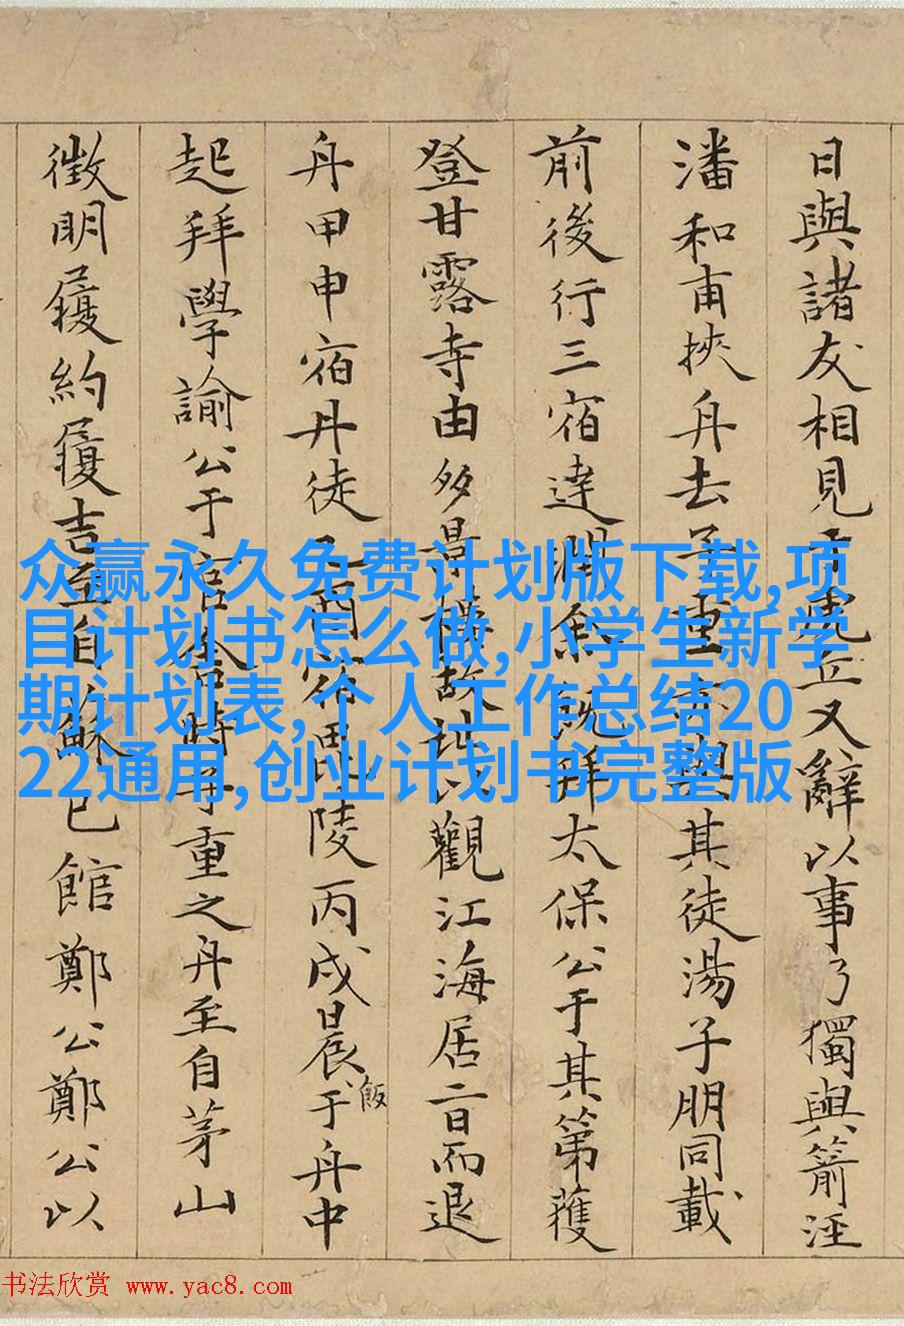 日與諸友相見于虎丘又辭以事乃獨與箭涇
潘和甫挾舟去子重亦與其徒湯子朋同載
前後行三宿達潤余既拜太保公于其第獲
登甘露寺由多景樓故址以觀江海居二日而退
舟甲申宿丹徒乙酉宿毗陵丙戌晨飯于舟中
起拜學諭公于官舍時子重之舟至自茅山
徵明履約履吉至自蘇已館鄭公鄭公以
众赢永久免费计划版下载,项
目计划书怎么做,小学生新学
期计划表,个人工作总结20
22通用,创业计划书完整版
书法欣赏 www.yac8.com